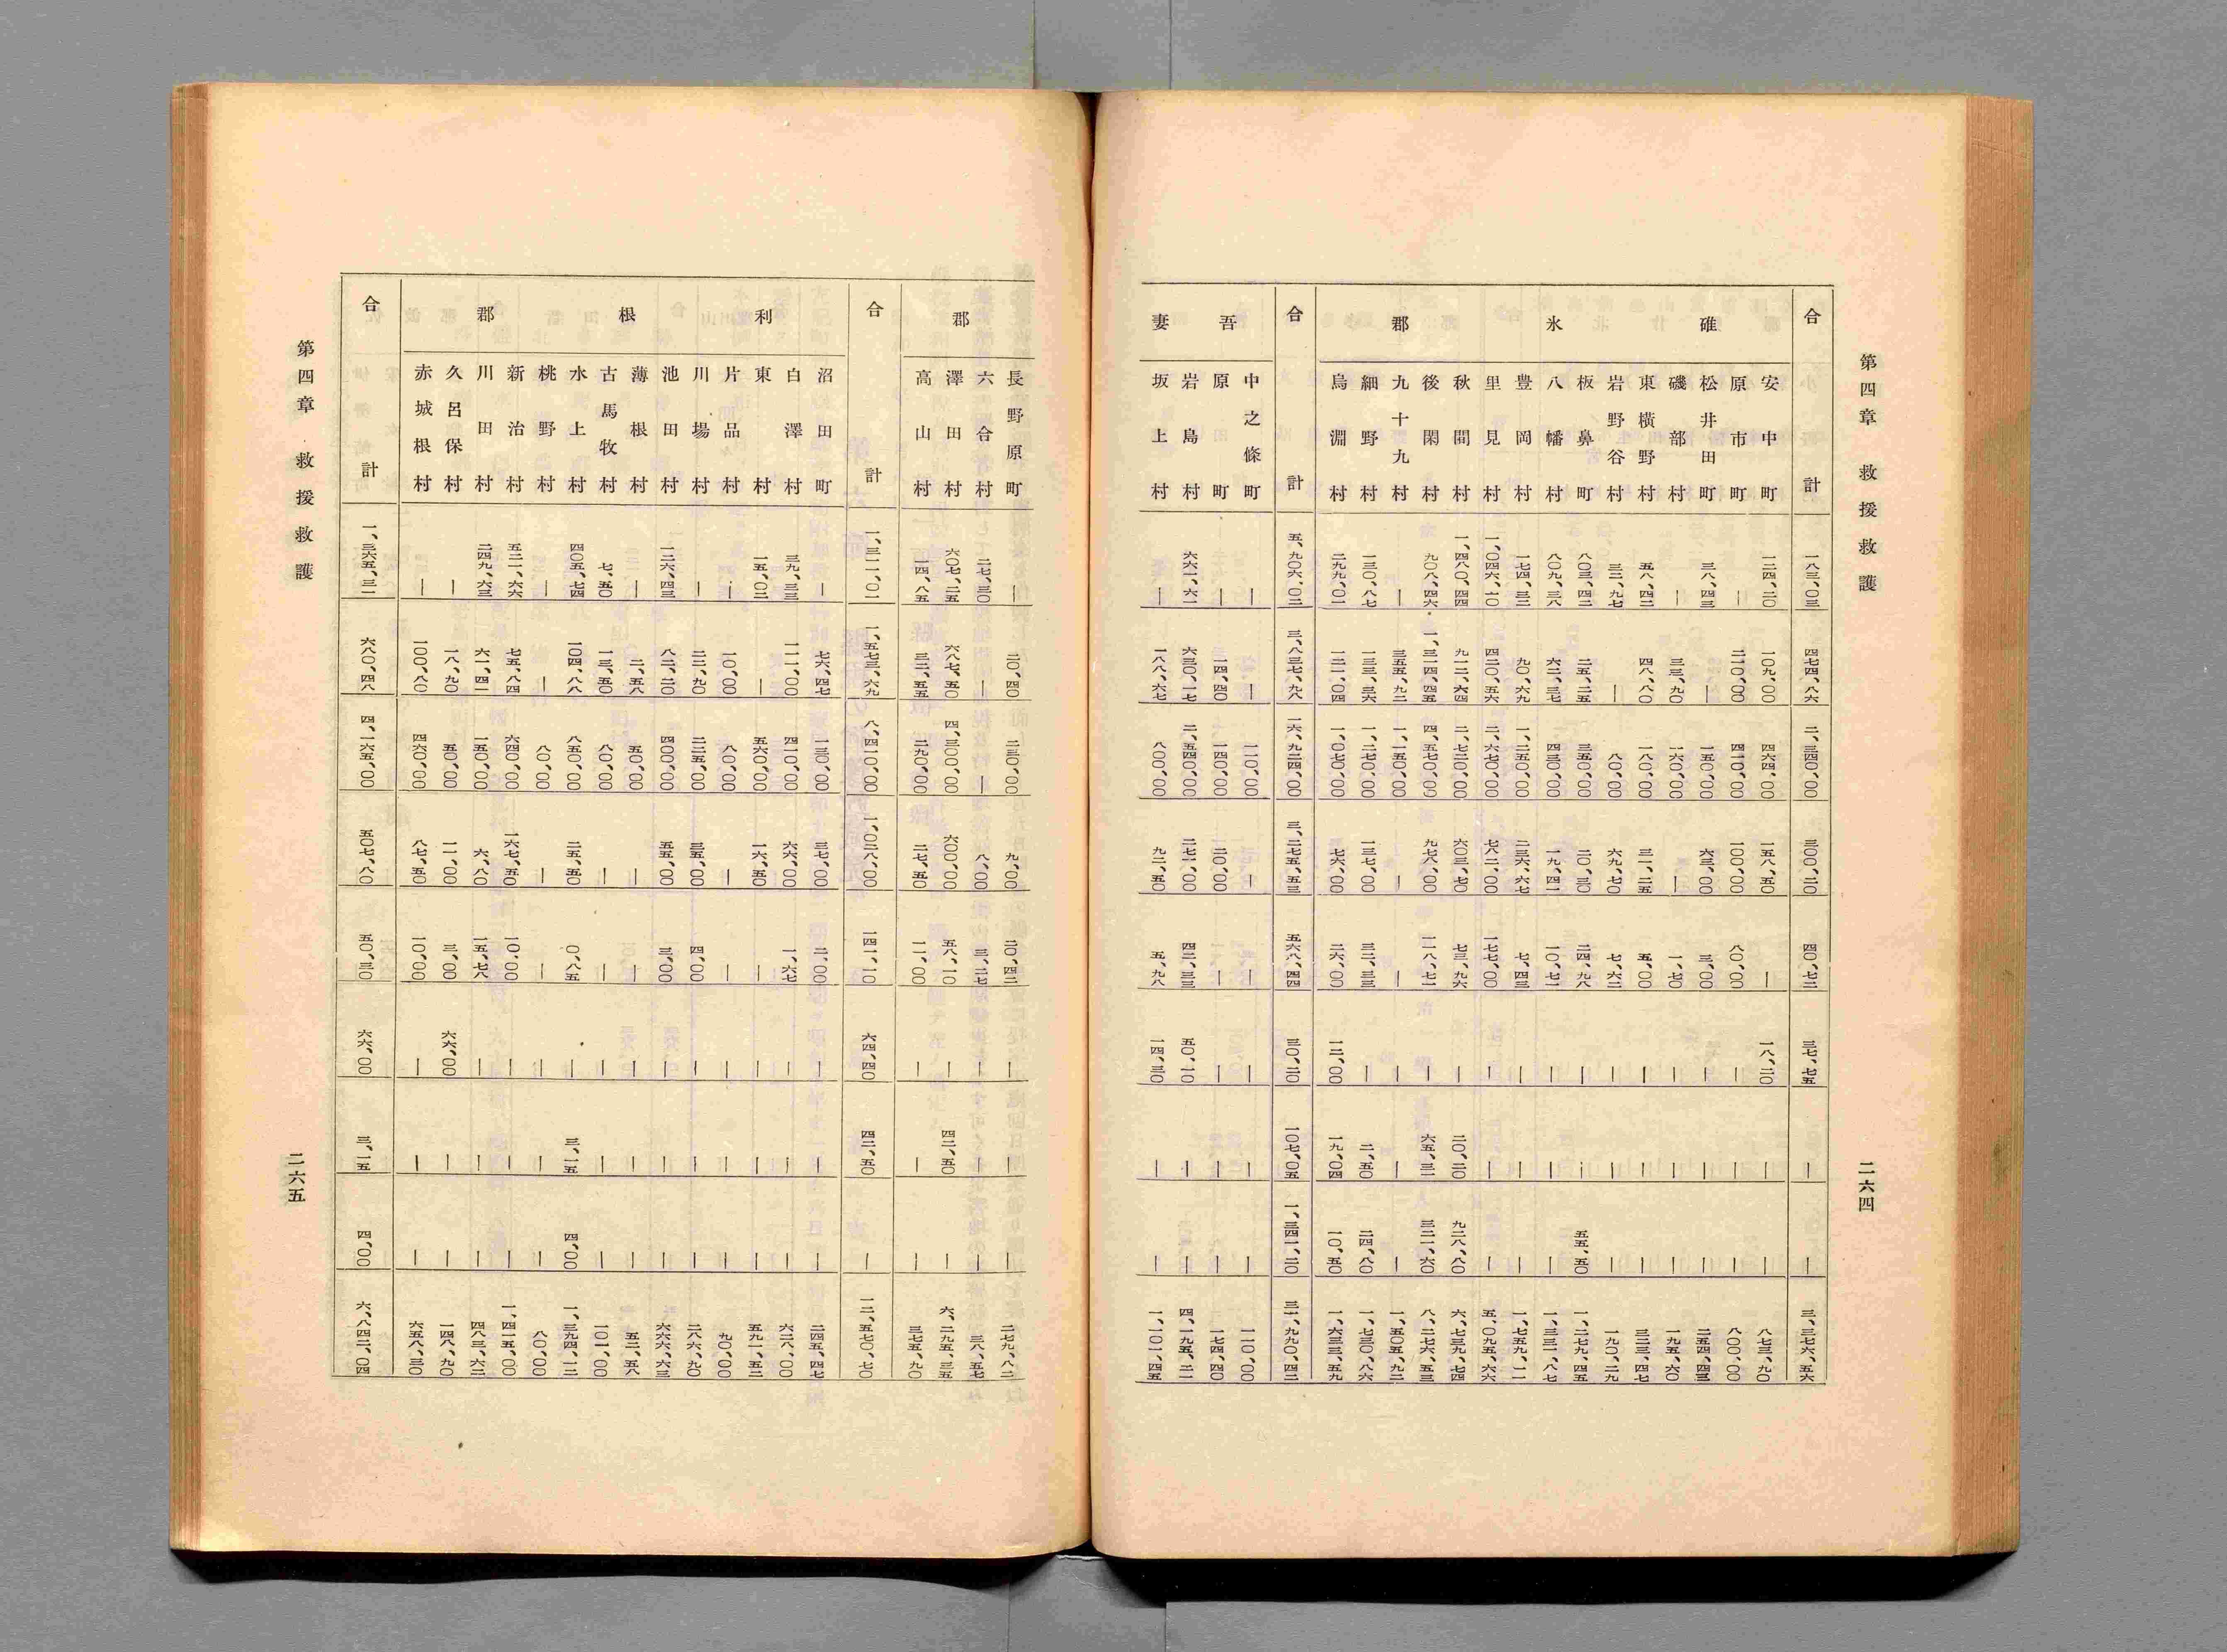 第四章 救援救護
二六四
合計 一八三、〇三 四七四、八六 二、三四〇、〇〇 三〇〇、二〇 四〇、七二 三七、七五 ― ― 三、三七六、五六
碓氷郡
安中町 一二四、二〇 一〇九、〇〇 四六四、〇〇 一五八、五〇 ― 一八、二〇 ― ― 八七三、九〇
原市町 ― 二一〇、〇〇 四一〇、〇〇 一〇〇、〇〇 八〇、〇〇 ― ― ― 八〇〇、〇〇
松井田町 三八、四三 ― 一五〇、〇〇 六三、〇〇 三、〇〇 ― ― ― 二五四、四三
磯部村 ― 三三、九〇 一六〇、〇〇 ― 一、七〇 ― ― ― 一九五、六〇
東橫野村 五八、四二 四八、八〇 一八〇、〇〇 三一、二五 五、〇〇 ― ― ― 三二三、四七
岩野谷村 三二、九七 ― 八〇、〇〇 六九、七〇 七、六二 ― ― ― 一九〇、二九
板鼻町 八〇三、四二 二五、二五 三五〇、〇〇 二〇、三〇 二四、九八 ― ― 五五、五〇 一、二七九、四五
八幡村 八〇九、三八 六二、三七 四三〇、〇〇 一九、四一 一〇、七一 ― ― ― 一、三三一、八七
豊岡村 一七四、三二 九〇、六九 一、二五〇、〇〇 二三六、六七 七、四三 ― ― ― 一、七五九、一一
里見村 一、〇四六、一〇 四二〇、五六 二、六七〇、〇〇 七八二、〇〇 一七七、〇〇 ― ― ― 五、〇九五、六六
秋間村 一、四八〇、四四 九一二、六四 二、七二〇、〇〇 六〇三、七〇 七三、九六 ― 二〇、二〇 九二八、八〇 六、七三九、七四
後閑村 九〇八、四六 一、三一四、四五 四、五七〇、〇〇 九七八、〇〇 一一八、七一 ― 六五、三一 三二一、六〇 八、二七六、五三
九十九村 ― 三五五、九二 一、一五〇、〇〇 ― ― ― ― ― 一、五〇五、九二
細野村 一三〇、八七 一三三、三六 一、二七〇、〇〇 一三七、〇〇 三二、三三 ― 二、五〇 二四、八〇 一、七三〇、八六
烏淵村 二九九、〇一 一二一、〇四 一、〇七〇、〇〇 七六、〇〇 二六、〇〇 一二、〇〇 一九、〇四 一〇、五〇 一、六三三、五九
合計 五、九〇六、〇二 三、八三七、九八 一六、九二四、〇〇 三、二七五、五三 五六八、四四 三〇、二〇 一〇七、〇五 一、三四一、二〇 三一、九九〇、四二
吾妻
中之條町 ― ― 一一〇、〇〇 ― ― ― ― ― 一一〇、〇〇
原町 ― 一四、四〇 一四〇、〇〇 二〇、〇〇 ― ― ― ― 一七四、四〇
岩島村 六六一、六一 六三〇、一七 二、五四〇、〇〇 二七一、〇〇 四二、三三 五〇、一〇 ― ― 四、一九五、二一
坂上村 ― 一八八、六七 八〇〇、〇〇 九二、五〇 五、九八 一四、三〇 ― ― 一、一〇一、四五
郡
長野原町 ― 二〇、四〇 二三〇、〇〇 九、〇〇 二〇、四二 ― ― ― 二七九、八二
六合村 二七、三〇 ― ― 八、〇〇 三、二七 ― ― ― 三八、五七
澤田村 六〇七、二五 六八七、五〇 四、三〇〇、〇〇 六〇〇、〇〇 五八、一〇 ― 四二、五〇 ― 六、二九五、三五
高山村 一四、八五 三二、五五 二九〇、〇〇 二七、五〇 一一、〇〇 ― ― ― 三七五、九〇
合計 一、三一一、〇一 一、五七三、六九 八、四一〇、〇〇 一、〇二八、〇〇 一四一、一〇 六四、四〇 四二、五〇 ― 一二、五七〇、七〇
利根郡
沼田町 ― 七六、四七 一三〇、〇〇 三七、〇〇 二、〇〇 ― ― ― 二四五、四七
白澤村 三九、三三 一一一、〇〇 四一〇、〇〇 六六、〇〇 一、六七 ― ― ― 六二八、〇〇
東村 一五、〇二 ― 五六〇、〇〇 一六、五〇 ― ― ― ― 五九一、五二
片品村 ― 一〇、〇〇 八〇、〇〇 ― ― ― ― ― 九〇、〇〇
川場村 ― 二二、九〇 二二五、〇〇 三五、〇〇 四、〇〇 ― ― ― 二八六、九〇
池田村 一二六、四三 八二、二〇 四〇〇、〇〇 五五、〇〇 三、〇〇 ― ― ― 六六六、六三
薄根村 ― 二、五八 五〇、〇〇 ― ― ― ― ― 五二、五八
古馬牧村 七、五〇 一三、五〇 八〇、〇〇 ― ― ― ― ― 一〇一、〇〇
水上村 四〇五、七四 一〇四、八八 八五〇、〇〇 二五、五〇 〇、八五 ― 三、一五 四、〇〇 一、三九四、一二
桃野村 ― ― 八〇、〇〇 ― ― ― ― ― 八〇、〇〇
新治村 五二一、六六 七五、八四 六四〇、〇〇 一六七、五〇 一〇、〇〇 ― ― ― 一、四一五、〇〇
川田村 二四九、六三 六一、四一 一五〇、〇〇 六、八〇 一五、七八 ― ― ― 四八三、六二
久呂保村 ― 一八、九〇 五〇、〇〇 一一、〇〇 三、〇〇 六六、〇〇 ― ― 一四八、九〇
赤城根村 ― 一〇〇、八〇 四六〇、〇〇 八七、五〇 一〇、〇〇 ― ― ― 六五八、三〇
合計 一、三六五、三一 六八〇、四八 四、一六五、〇〇 五〇七、八〇 五〇、三〇 六六、〇〇 三、一五 四、〇〇 六、八四二、〇四
第四章 救援救護
二六五